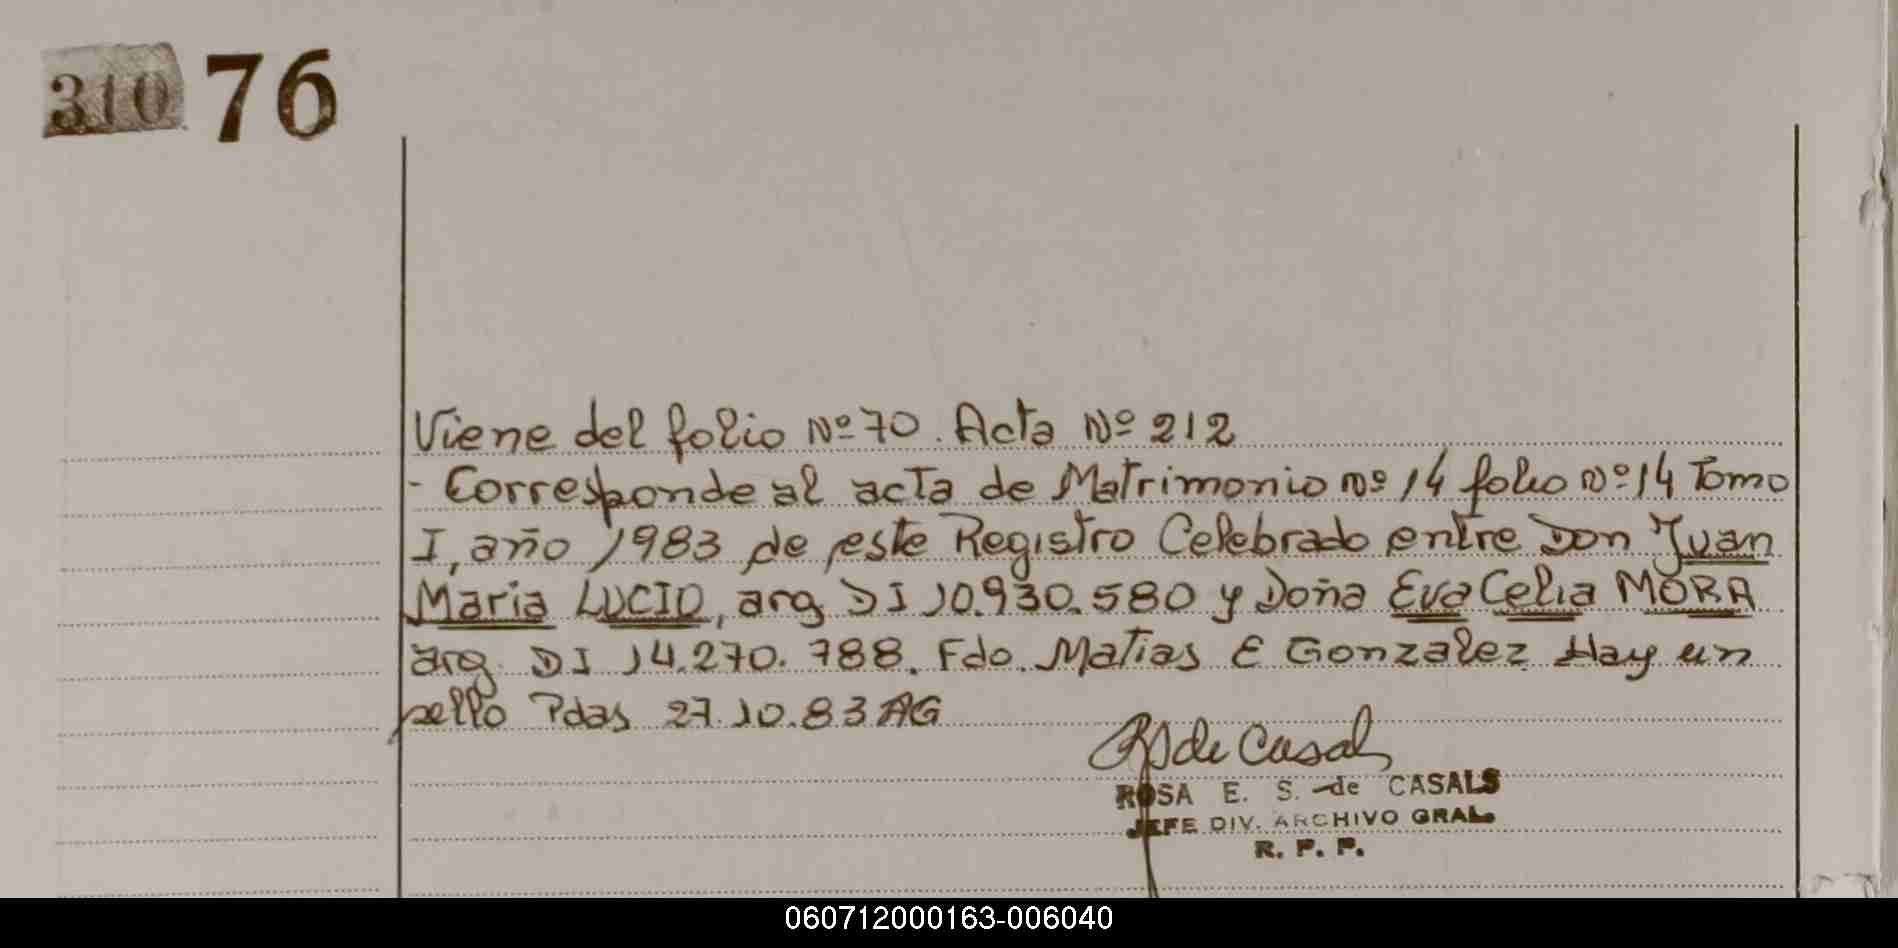 310 76
Viene del folio Nº 70. Acta Nº 212
- Corresponde al acta de Matrimonio nº 14 folio nº 14 Tomo
I, año 1983 de este Registro Celebrado entre Don Juan
Maria LUCIO, arg DI 10.930.580 y Doña Eva Celia MORA
arg. DI 14.270.788. Fdo. Matias E Gonzalez Hay un
sello Pdas 27.10.83 AG
RS de Casals
ROSA E. S. de CASALS
JEFE DIV. ARCHIVO GRAL.
R. P. P.
060712000163-006040